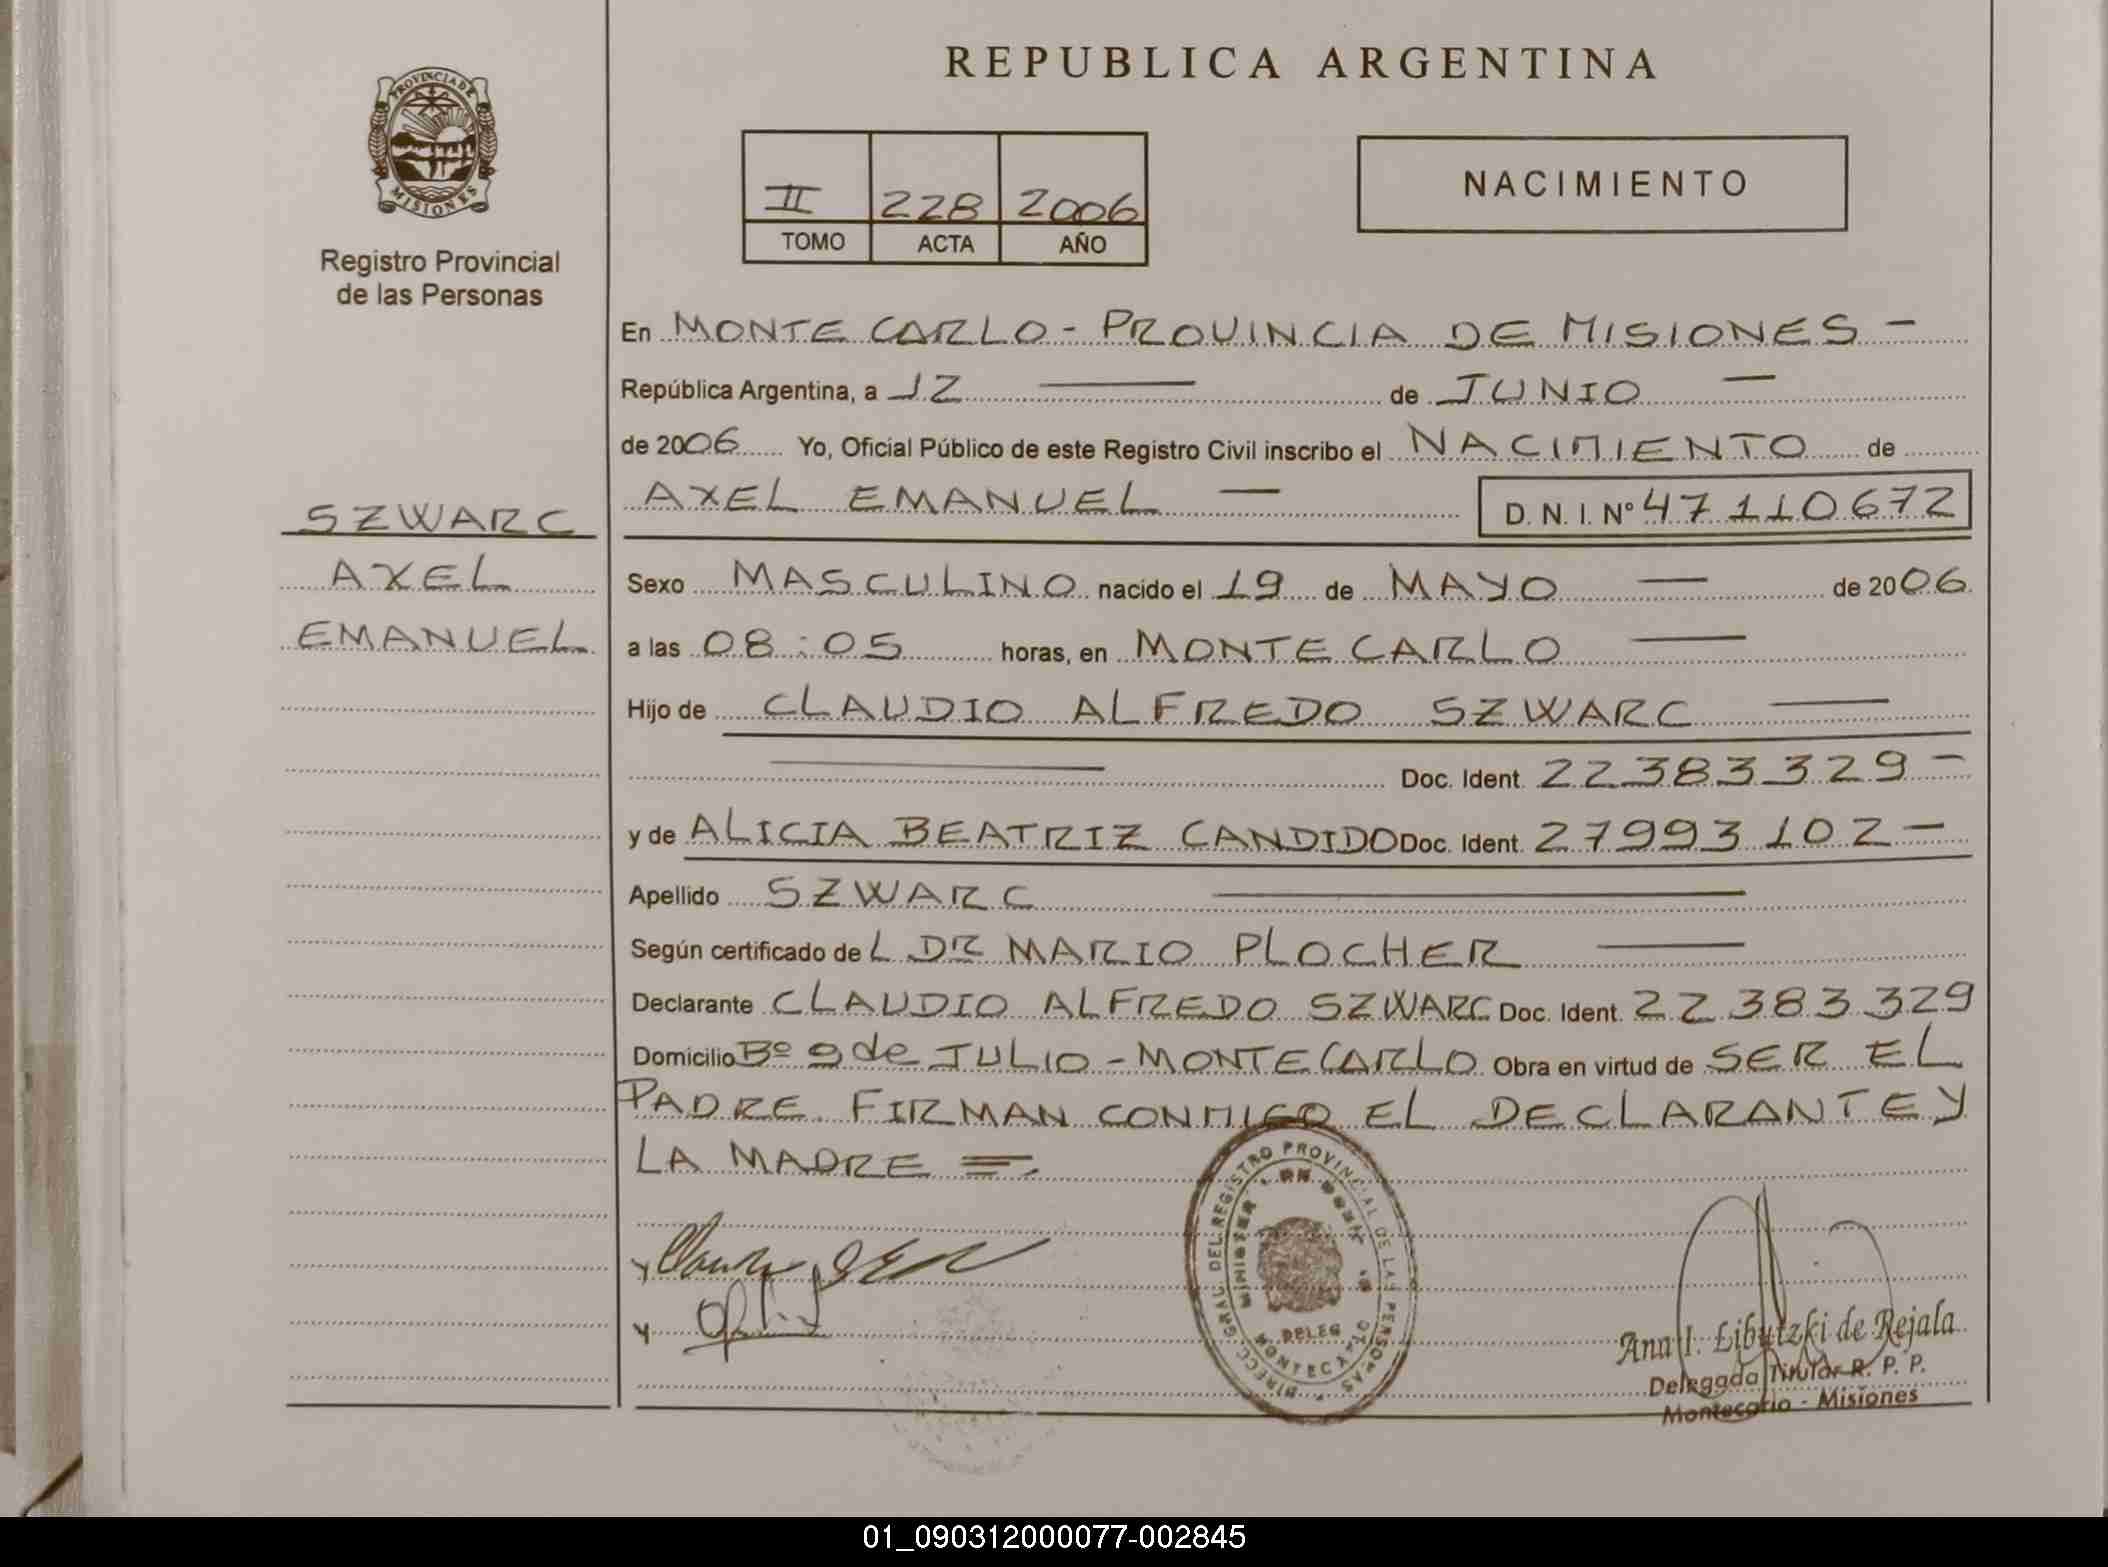 REPUBLICA ARGENTINA
PROVINCIA DE
MISIONES
Registro Provincial
de las Personas
II 228 2006
TOMO ACTA AÑO
NACIMIENTO
En MONTE CARLO - PROVINCIA DE MISIONES -
República Argentina, a 12 de JUNIO
de 2006 Yo, Oficial Público de este Registro Civil inscribo el NACIMIENTO de
AXEL EMANUEL D. N. I. Nº 47110672
SZWARC
AXEL
EMANUEL
Sexo MASCULINO nacido el 19 de MAYO de 2006
a las 08:05 horas, en MONTE CARLO
Hijo de CLAUDIO ALFREDO SZWARC
Doc. Ident. 22383329 -
y de ALICIA BEATRIZ CANDIDO Doc. Ident. 27993102 -
Apellido SZWARC
Según certificado de L DR MARIO PLOCHER
Declarante CLAUDIO ALFREDO SZWARC Doc. Ident. 22383329
Domicilio Bº 9 de JULIO - MONTECARLO Obra en virtud de SER EL
PADRE FIRMAN CONMIGO EL DECLARANTE Y
LA MADRE =.
DIRECC. GRAL. DEL REGISTRO PROVINCIAL DE LAS PERSONAS
DELEG
MONTECARLO
Ana I. Libutzki de Rejala
Delegada Titular R. P. P.
Montecarlo - Misiones
01_090312000077-002845